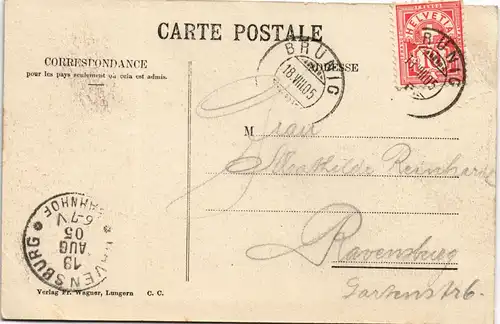 CARTE POSTALE
CORRESPONDANCE
pour les pays seulement où cela est admis.
ADRESSE
HELVETIA
BRÜNIG
18.VIII.05
BRÜNIG
M
Frau
Mathilde Reinhardt
Ravensburg
Gartenstr 6.
RAVENSBURG
BAHNHOF
6-7 V
18
AUG
05
Verlag Fr. Wagner, Lungern C. C.